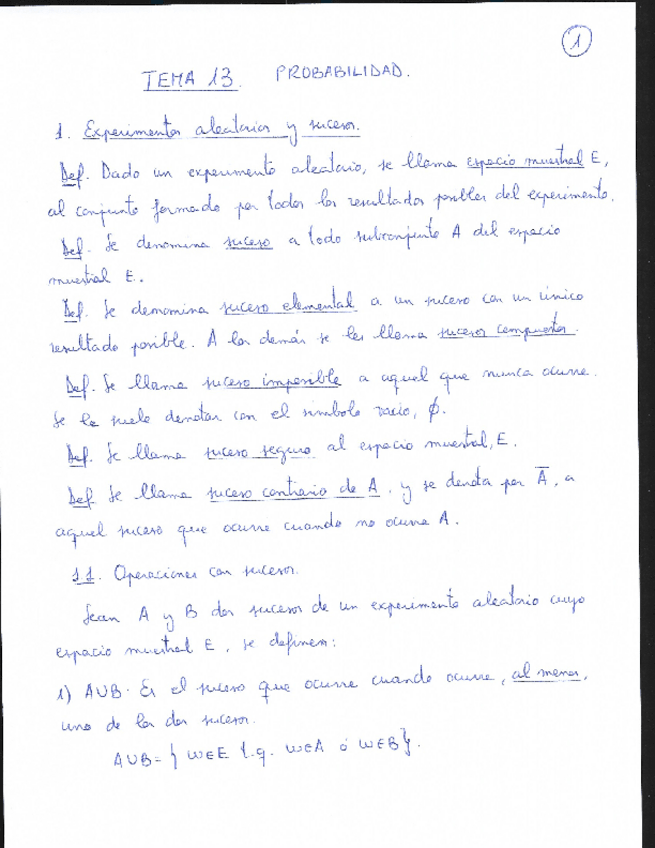 1
TEMA 13. PROBABILIDAD.
1. Experimentos aleatorios y sucesos.
Def. Dado un experimento aleatorio, se llama espacio muestral E,
al conjunto formado por todos los resultados posibles del experimento.
Def. Se denomina suceso a todo subconjunto A del espacio
muestral E.
Def. Se denomina suceso elemental a un suceso con un único
resultado posible. A los demás se les llama sucesos compuestos.
Def. Se llama suceso imposible a aquel que nunca ocurre.
Se le suele denotar con el símbolo vacío, ∅.
Def. Se llama suceso seguro al espacio muestral, E.
Def Se llama suceso contrario de A, y se denota por A̅, a
aquel suceso que ocurre cuando no ocurre A.
1.1. Operaciones con sucesos.
Sean A y B dos sucesos de un experimento aleatorio cuyo
espacio muestral E, se definen:
1) A∪B. Es el suceso que ocurre cuando ocurre, al menos,
uno de los dos sucesos.
A∪B = { w∈E t.q. w∈A ó w∈B }.